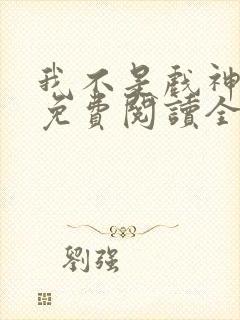 我不是戲神
免費閱讀全
劉强